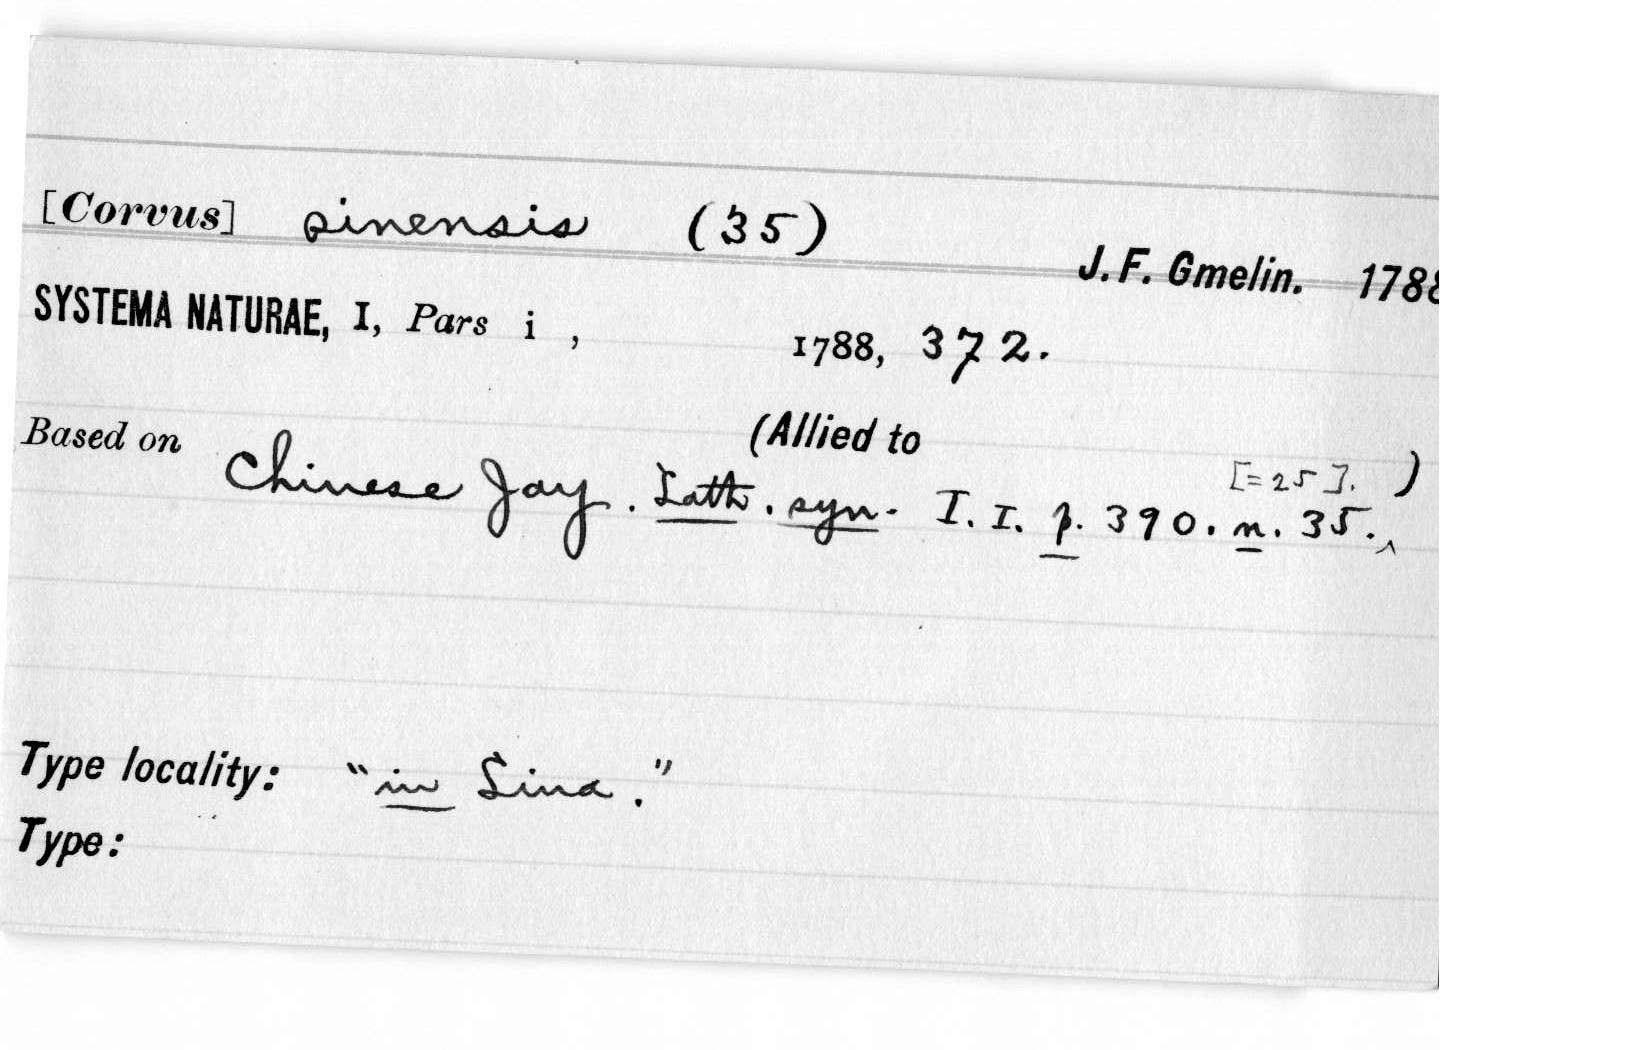 [Corvus] sinensis (35)
J. F. Gmelin. 1788
SYSTEMA NATURAE, I, Pars i , 1788, 372.
Based on (Allied to )
Chinese Jay. Lath. syn. I. I. p. 390. n. 35.‸ [=25].
Type locality: "in Sina."
Type: